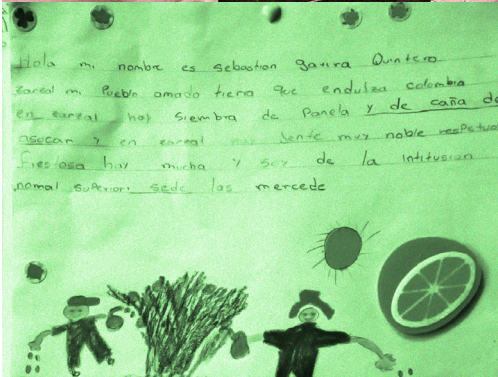 Hola mi nombre es sebastian gavira Quintero
zareal mi Pueblo amado tierra que endulza colombia
en eareal hay Siembra de Panela y de caña de
asucar y en eareal hay Jente muy noble respetuo
fiestosa hay mucha y soy de la intitusion
nomal superiori sede las mercede